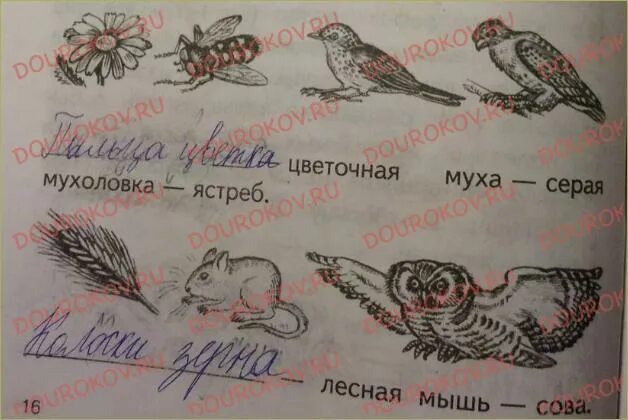 DOUROKOV.RU
Пыльца цветка цветочная муха — серая
мухоловка — ястреб.
Колоски зерна лесная мышь — сова.
16